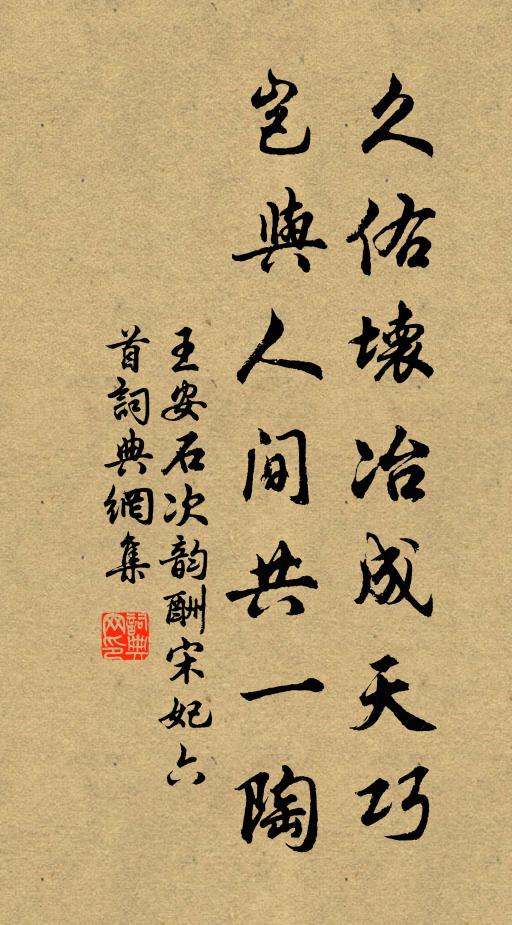 久佑壞冶成天巧
豈與人間共一陶
王安石次韵酬宋妃六
首詞典網集
詞典网印